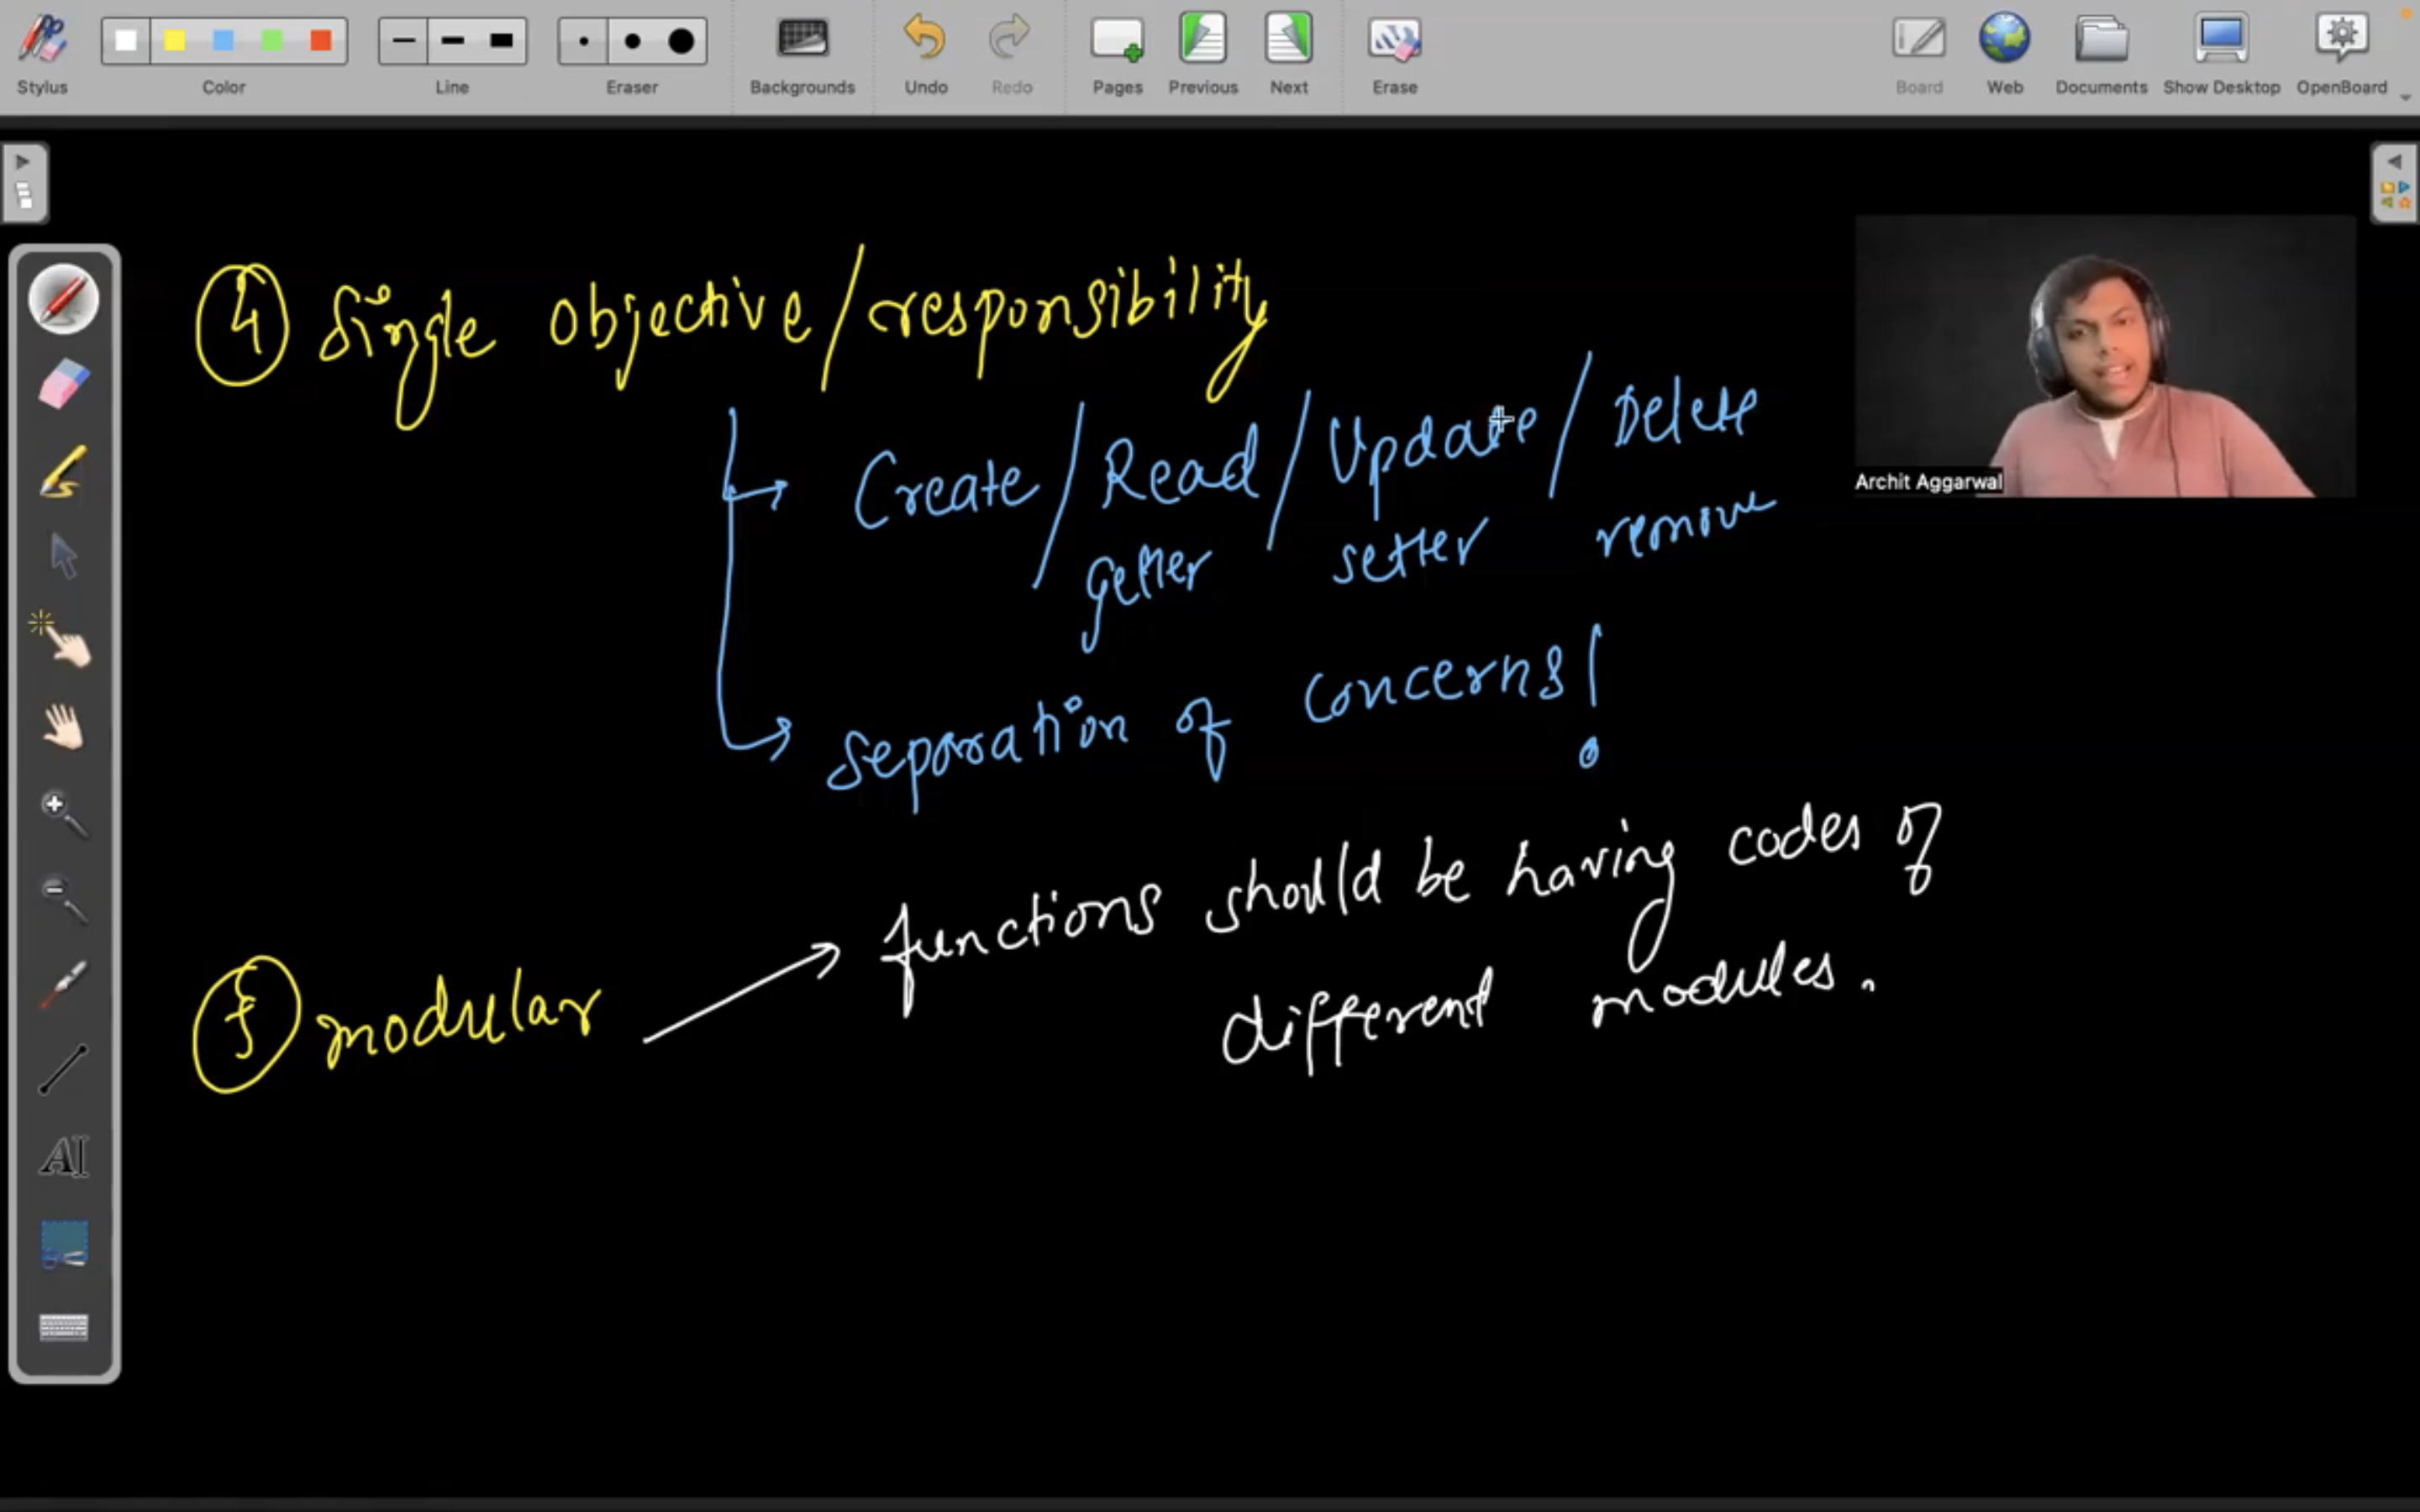 Stylus
Color
Line
Eraser
Backgrounds
Undo
Redo
Pages
Previous
Next
Erase
Board
Web
Documents
Show Desktop
OpenBoard
4 Single objective/responsibility
Create/Read/Update/Delete
getter setter remove
separation of concerns!
Archit Aggarwal
5 modular → functions should be having codes of
different modules.
AI